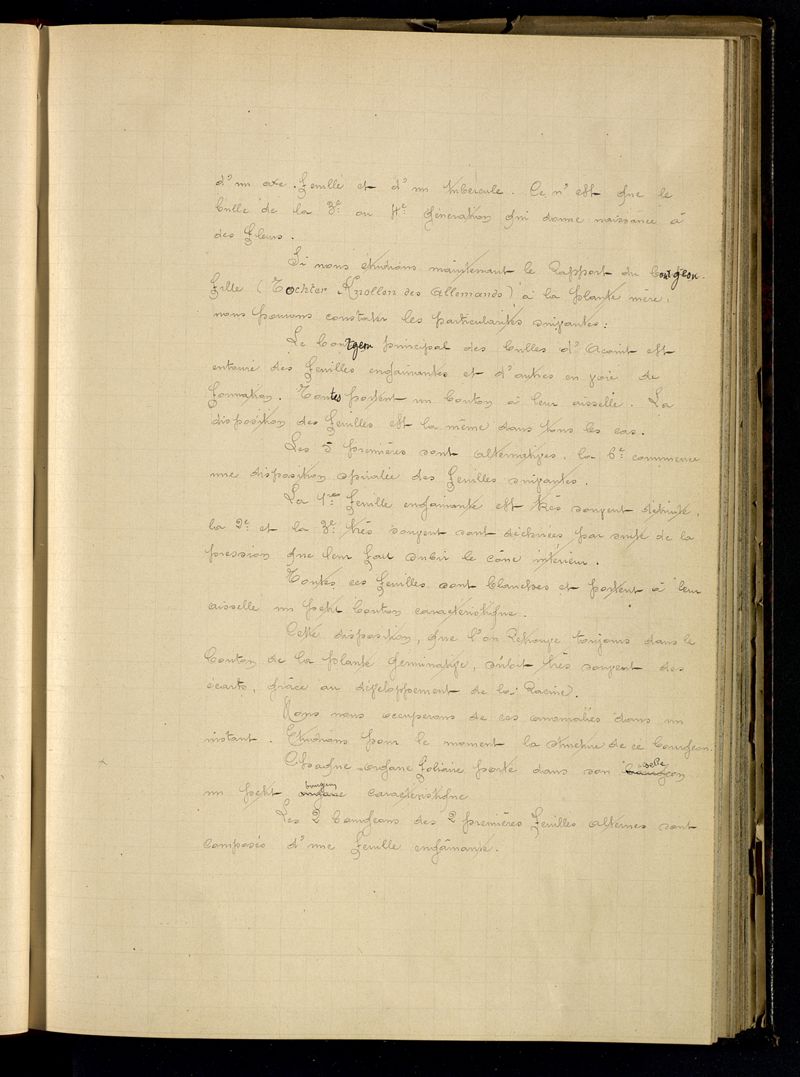 d'un axe feuillé et d'un tubercule. Ce n'est que le
bulle de la 3e ou 4e génération qui donne naissance à
des fleurs.
Si nous étudions maintenant le Rapport du bourgeon-
fille (Tochter Knollon des Allemands) à la plante mère,
nous pouvons constater les particularités suivantes:
Le bourgeon principal des bulles d'Aconit est
entouré des feuilles engainantes et d'autres en voie de
formation. Toutes portent un bouton à leur aisselle. La
disposition des feuilles est la même dans tous les cas.
Les 5 premières sont alternatives. la 6e commence
une disposition spiralée des feuilles suivantes.
La 1re feuille engainante est très souvent détruite,
la 2e et la 3e très souvent sont déchirées par suite de la
pression que leur fait subir le cône intérieur.
Toutes ces feuilles sont blanches et portent à leur
aisselle un petit bouton caractéristique.
Cette disposition, que l'on Retrouve toujours dans le
bouton de la plante germinative, subit très souvent des
écarts, grâce au développement de la Racine.
Nous nous occuperons de ces anomalies dans un
instant. Etudions pour le moment la structure de ce bourgeon.
Chaque organe foliaire porte dans son aisselle
un petit bourgeon caractéristique
Les 2 bourgeons des 2 premières feuilles alternes sont
composés d'une feuille engainante.